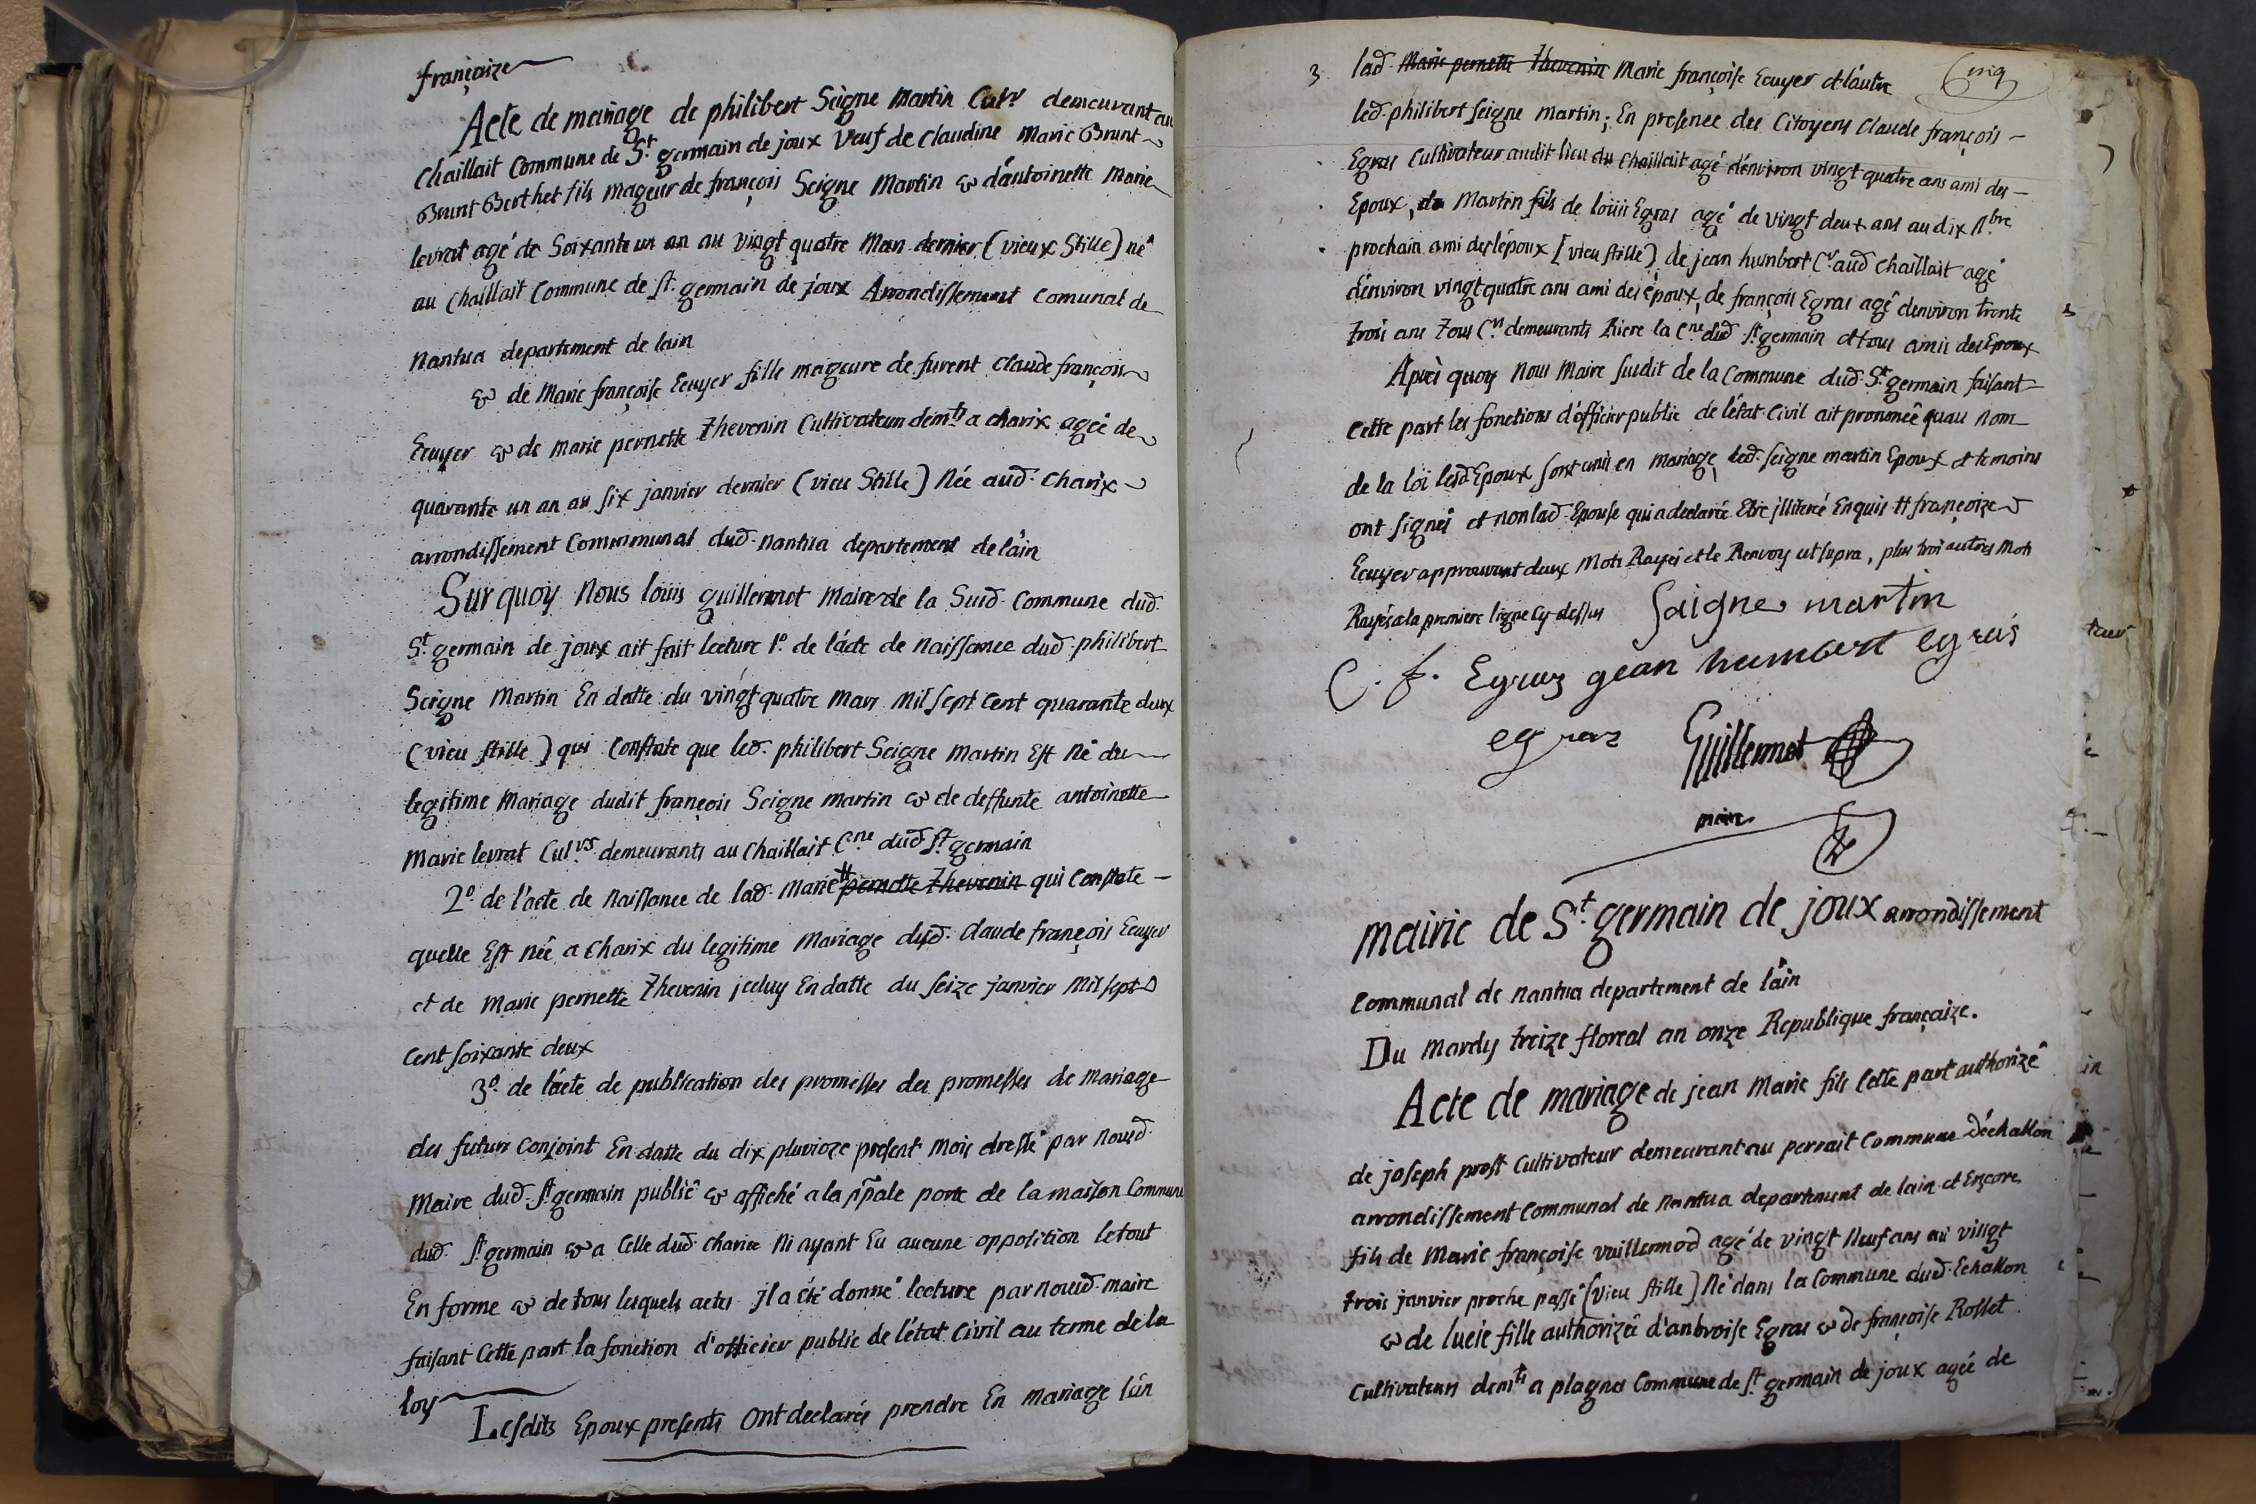 françaize
Acte de mariage de philibert Seigne Martin Culr demeurant au
Chaillait Commune de St. germain de joux Veuf de Claudine Marie Brunt
Brunt Berthet fils mageur de françois Seigne Martin & d'antoinette Marie
levrat agé de Soixante un an au vingt quatre Mars dernier (vieux Stille) né
au Chaillait Commune de st. germain de joux Arrondissement Comunal de
Nantua departement de lain
& de Marie françoise Ecuyer fille mageure de furent Claude françois
Ecuyer & de Marie pernette Thevenin Cultivateurs demts a charix agée de
quarante un an au six janvier dernier (vieu Stille) Née aud. Charix
arrondissement Commmunal dud. nantua departement de láin
Sur quoy Nous louis guillermot Maire de la Susd. Commune dud.
St. germain de joux ait fait lecture 1o. de lácte de naissance dud. philibert
Seigne Martin En datte du vingt quatre Mars Mil sept Cent quarante deux
(vieu stille) qui Constate que led. philibert Seigne Martin Est Né du
legitime Mariage dudit françois Seigne martin & de deffunte antoinette
Marie levrat Culrs demeurants au Chaillait Cne dud. St. germain
2o. de l'acte de Naissance de lad. Marie # pernette Thevenin qui Constate
quelle Est née a Charix du legitime Mariage dud. Claude françois Ecuyer
et de Marie pernette Thevenin jceluy En datte du seize janvier Mil sept
Cent soixante deux
3o. de lácte de publication des promesses des promesses de Mariage
des futurs Conjoint En datte du dix pluvioze present Mois dressé par Nousd.
Maire dud. St. germain publié & affiché a la ppale porte de la maison Commune
dud. St. germain & a Celle dud. Charix Ni ayant Eu aucune opposition le tout
En forme & de tous lesquels actes jl a été donné lecture par nousd. Maire
faisant Cette part la fonction d'officier public de l'état Civil au terme de la
loy
Lesdits Epoux presents Ont declarés prendre En mariage lún
3 lad. Marie pernette Thevenin Marie françoise Ecuyer et láutre
cinq
led. philibert seigne martin; En presence des Citoyens Claude françois
Egras Cultivateur audit lieu du Chaillait agé d'environ vingt quatre ans ami des
Epoux, de Martin fils de loüis Egras agé de vingt deux ans au dix 9bre
prochain ami des lépoux [vieu stille) de jean humbert Cr. aud Chaillait agé
d'environ vingt quatre ans ami des époux, de françois Egras agé denviron trente
trois ans Tous Crs demeurants Riere la Cne dud St. germain et tous amis des Epoux
Après quoy Nous Maire susdit de la Commune dud. St. germain faisant
Cette part les fonctions d'officier public de létat Civil ait prononcé quau Nom
de la loi lesd Epoux sont unis en Mariage, led. seigne martin Epoux et temoins
ont signés et non lad. Epouse qui a declarée Etre jllitérée Enquis # françoize
Ecuyer approuvant deux Mots Rayés et le Renvoy ut supra, plus troi autres Mots
Rayés a la premiere ligne Cy dessus
Saigne martin
C. f. Egraz gean humbert egras
egraz
Guillermot
maire
Mairie de St. germain de joux arrondissement
Communal de Nantua departement de láin
Du Mardy treize floreal an onze Republique françaize.
Acte de mariage de jean Marie fils Cette part authorizé
de joseph prost Cultivateur demeurant au perrait Commune Déchallon
arrondissement Communal de Nantua departement de lain et Encore
fils de Marie françoise vuillermod agé de vingt Neuf ans au vingt
trois janvier proche passé [vieu stille) Né dans la Commune dud. Echallon
& de lucie fille authorizée d'anbroise Egras & de françoise Rosset
Cultivateurs demts a plagnes Commune de St. germain de joux agée de